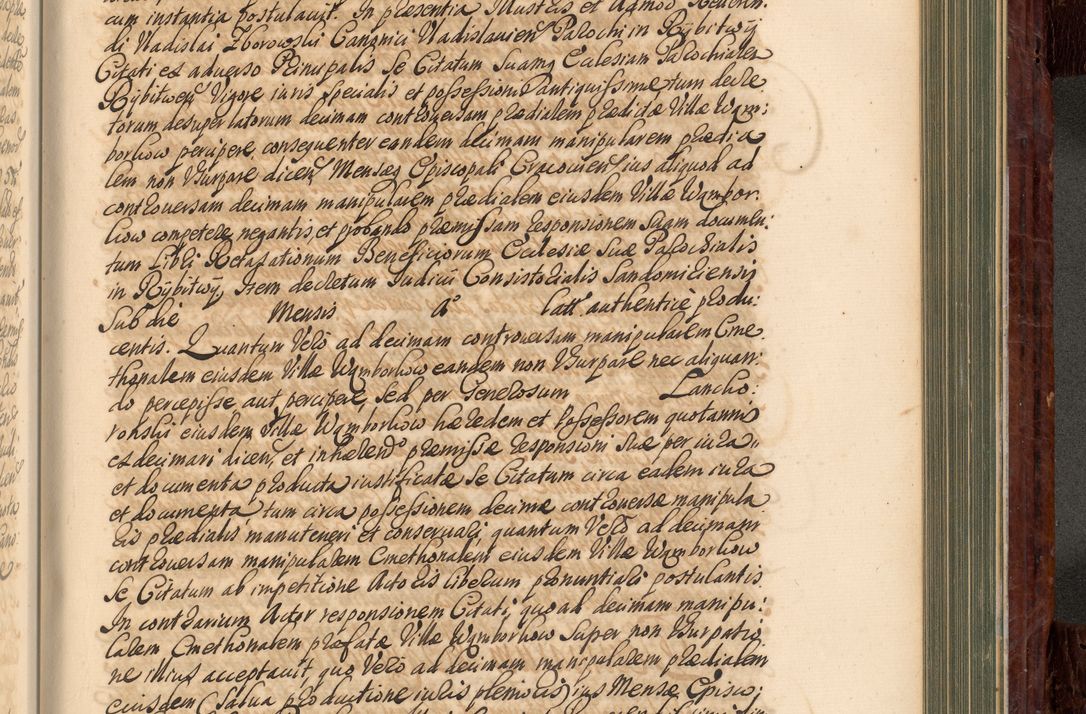 cum instantia postulavit. In præsentia Illustris et Admod Reveren:
di Vladislai Zborowski Canonici Vladislavien Parochi in Rybitwÿ
Citati ex adverso Principalis se Citatum suamq Ecclesiam Parochialem
Rybitwen Vigore iuris specialis et possessionis antiquissimæ tum decre
torum desuper latorum decimam controversam prædialem prædictæ Villæ Wąm:
borkow percipere consequenter eandem decimam manipularem prædia
lem non Vsurpare dicen Mensæq Episcopali Cracovien ius aliquod ad
controversam decimam manipularem prædialem eiusdem Villæ Wąmbor:
kow competere negantis, et probando præmissam responsionem suam documen:
tum Libri Retaxationum Beneficiorum Ecclesiæ suæ Parochialis
in Rybitwÿ, Item decretum Iudicii Consistorialis Sandomiriensis
Sub die Mensis Aº lat authenticè produ:
centis. Quantum Verò ad decimam controversam manipularem Cme
thonalem eiusdem Villæ Wąmborkow eandem non Vsurpare nec aliquan:
do percepisse aut percipere, sed per Generosum Lancko:
ronski eiusdem Villæ Wąmborkow hæredem et possessorem quotannis
ex decimari dicen, et inhæren præmissæ responsioni suæ per iura
et documenta producta iustificatæ se Citatum circa eadem iura
et documenta tum circa possessionem decimæ controversæ manipula
ris prædialis manuteneri et conservari, quantum Verò ad decimam
controversam manipularem Cmethonalem eiusdem Villæ Wąmborkow
se Citatum ab impetitione Actoris liberum pronuntiari postulantis.
In contrarium Actor responsionem Citati, quoad decimam manipu:
larem Cmethonalem præfatæ Villæ Wąmborkow super non Vsurpatio
ne illius acceptavit, quo Verò ad decimam manipularem prædialem
eiusdem (Salva productione iuris plenioris) ius Mensæ Episco: